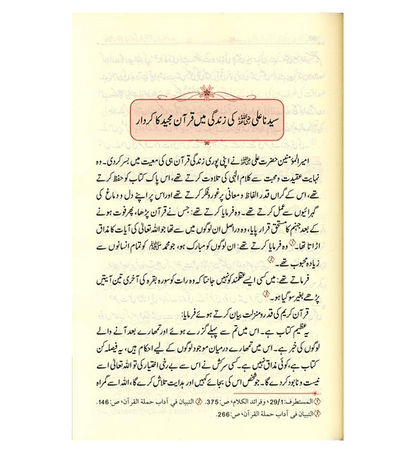 سیدنا علی ﷜ کی زندگی میں قرآن مجید کا کردار
امیر المؤمنین حضرت علی ﷜ نے اپنی پوری زندگی قرآن ہی کی معیت میں بسر کردی۔ وہ
نہایت عقیدت و محبت سے کلام الٰہی کی تلاوت کرتے تھے، اس پاک کتاب کو حفظ کرتے
تھے، اس کے گراں قدر الفاظ و معانی پر غور و فکر کرتے تھے اور اس پر اپنے دل و دماغ کی
گہرائیوں سے عمل کرتے تھے۔ وہ فرمایا کرتے تھے: جس نے قرآن پڑھا، پھر فوت ہونے
کے بعد جہنم کا مستحق قرار پایا، وہ دراصل ان لوگوں میں سے تھا جو اللہ تعالیٰ کی آیات کا مذاق
اڑاتا تھا۔ وہ فرمایا کرتے تھے: ان لوگوں کو مبارک ہو، جو محمد ﷺ کو تمام انسانوں سے
زیادہ محبوب تھے۔
فرماتے تھے: میں کسی ایسے عقلمند کو نہیں جانتا کہ وہ رات کو سورہ بقرہ کی آخری تین آیتیں
پڑھے بغیر سو گیا ہو۔
قرآن کریم کی قدر و منزلت بیان کرتے ہوئے فرمایا:
یہ عظیم کتاب ہے۔ اس میں تم سے پہلے گزرے ہوئے اور تمھارے بعد آنے والے
لوگوں کی خبر ہے۔ اس میں تمھارے درمیان موجود لوگوں کے لیے احکام ہیں، یہ فیصلہ کن
ہے، کوئی مذاق نہیں ہے۔ کسی سرکش نے اس سے بے رخی اختیار کی تو اللہ تعالیٰ اسے
نیست و نابود کر دے گا۔ جو شخص اس کی بجائے کہیں اور ہدایت تلاش کرے گا، اللہ اسے گمراہ
المستطرف: 29/1، وفرائد الکلام، ص: 375. التبیان في آداب حملة القرآن، ص: 146.
التبیان في آداب حملة القرآن، ص: 266.